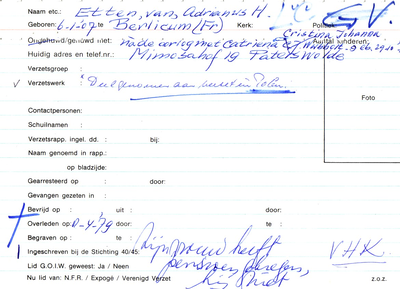 Naam etc.: Etten, van, Adrianus H. G.V.
Geboren: 6-1-07 te Berlicum (Fr) Kerk: Politiek
Cristina Johanna
Ongehuwd/gehuwd met: na de oorlog met Catriena Aantal kinderen:
Huidig adres en telef.nr.: Mimosahof 19 Paterswolde
Verzetsgroep :
√ Verzetswerk : "Deelgenomen aan verzet in Polen."
Foto
Contactpersonen:
Schuilnamen :
Verzetsrapp. ingel. dd. : bij:
Naam genoemd in rapp.:
op bladzijde:
Gearresteerd op : door:
Gevangen gezeten in :
Bevrijd op : uit : door:
Overleden op: 0-4-79 door: te :
Begraven op : te :
Ingeschreven bij de Stichting 40/45: Zijn vrouw heeft VHK.
Lid G.O.I.W. geweest: Ja / Neen pensioen
Nu lid van: N.F.R. / Expogé / Verenigd Verzet hij niet z.o.z.